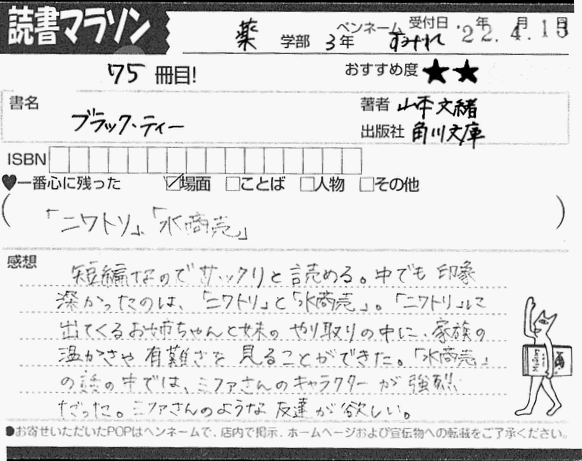 読書マラソン
薬 学部 3年 ペンネーム すみれ 受付日 '22年4月15日
75 冊目! おすすめ度 ★★
書名 ブラック・ティー
著者 山本文緒
出版社 角川文庫
ISBN
♥一番心に残った ☑場面 □ことば □人物 □その他
(「ニワトリ」、「水商売」)
感想
短編なのでサックリと読める。中でも印象
深かったのは、「ニワトリ」と「水商売」。「ニワトリ」に
出てくるお姉ちゃんと妹のやり取りの中に、家族の
温かさや有難さを見ることができた。「水商売」
の話の中では、ミファさんのキャラクターが強烈
だった。ミファさんのような友達が欲しい。
●お寄せいただいたPOPはペンネームで、店内で掲示、ホームページおよび宣伝物への転載をご了承ください。